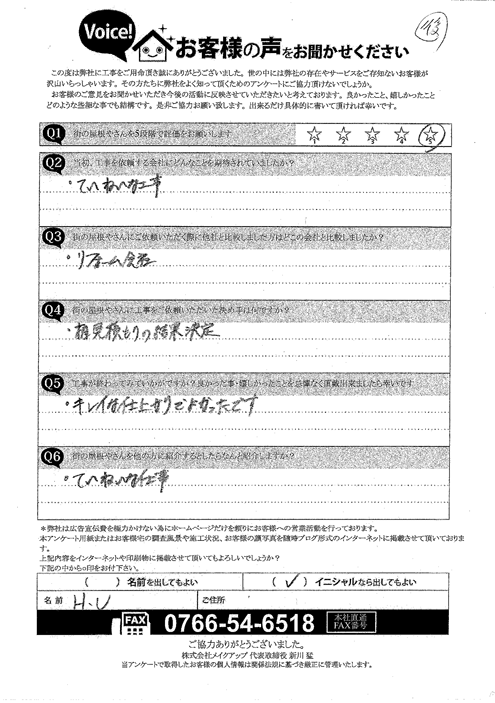 Voice!
お客様の声をお聞かせください
後
この度は弊社に工事をご用命頂き誠にありがとうございました。世の中には弊社の存在やサービスをご存知ないお客様が
沢山いらっしゃいます。その方たちに弊社をよく知って頂くためのアンケートにご協力頂けないでしょうか。
お客様のご意見をお聞かせいただき今後の活動に反映させていただきたいと考えております。良かったこと、嬉しかったこと
どのような些細な事でも結構です。是非ご協力お願い致します。出来るだけ具体的に書いて頂ければ幸いです。
Q1 街の屋根やさんを5段階で評価をお願いします
1 2 3 4 5
Q2 当初、工事を依頼する会社にどんなことを期待されていましたか?
・ていねいな工事
Q3 街の屋根やさんにご依頼いただく際に他社と比較しました方はどこの会社と比較しましたか?
・リフォーム会社
Q4 街の屋根やさんに工事をご依頼いただいた決め手は何ですか?
・相見積もりの結果決定
Q5 工事が終わってみていかがですか?良かった事・嬉しかったことを忌憚なく頂戴出来ましたら幸いです
・キレイな仕上がりでよかったです
Q6 街の屋根やさんを他の方に紹介するとしたらなんと紹介しますか?
・ていねいな仕事
*弊社は広告宣伝費を極力かけない為にホームページだけを頼りにお客様への営業活動を行っております。
本アンケート用紙またはお客様宅の調査風景や施工状況、お客様の顔写真を随時ブログ形式のインターネットに掲載させて頂いております。
上記内容をインターネットや印刷物に掲載させて頂いてもよろしいでしょうか?
下記の中から○印をお付下さい。
( )名前を出してもよい (✓)イニシャルなら出してもよい
名前 H.U ご住所
FAX 0766-54-6518 本社直通FAX番号
ご協力ありがとうございました。
株式会社メイクアップ 代表取締役 新川 猛
当アンケートで取得したお客様の個人情報は関係法規に基づき厳正に管理いたします。